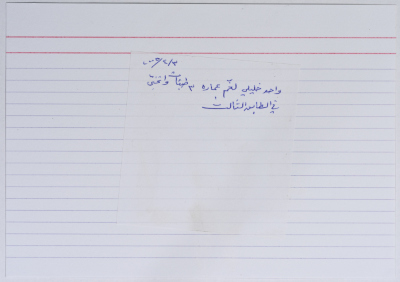 واحد خليلي لغم عماره ٣ طبقات واختى
في الطابق الثالث